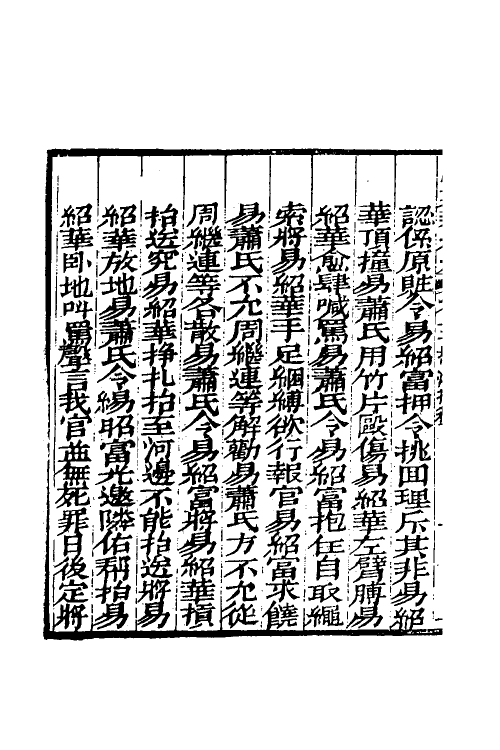 認係原賍令易紹富押令挑回理斥其非易紹
華頂撞易蕭氏用竹片毆傷易紹華左臂膊易
紹華愈肆喊罵易蕭氏令易紹富抱住自取繩
索將易紹華手足綑縛欲行報官易紹富求饒
易蕭氏不允周繼連等解勸易蕭氏方不允從
周繼連等各散易蕭氏令易紹富將易紹華槓
抬送究易紹華掙扎抬至河邊不能抬送將易
紹華放地易蕭氏令易紹富先邀隣佑幫抬易
紹華臥地叫罵聲言我官並無死罪日後定將